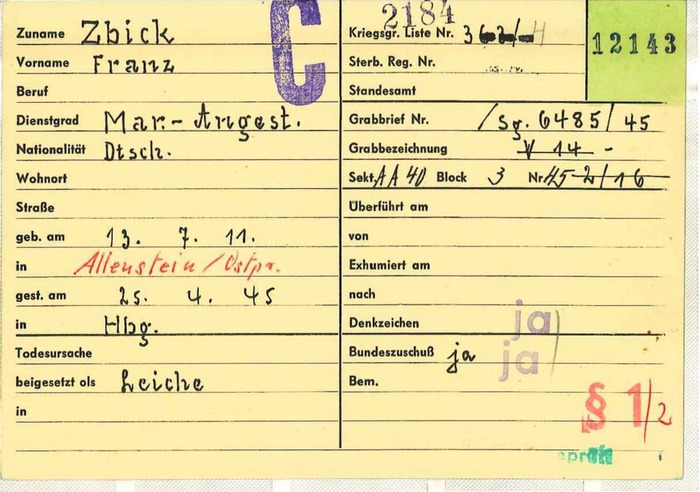 C
2184
12143
Zuname Zbick
Vorname Franz
Beruf
Dienstgrad Mar.-Angest.
Nationalität Dtsch.
Wohnort
Straße
geb. am 13. 7. 11.
in Allenstein/Ostpr.
gest. am 25. 4. 45
in Hbg.
Todesursache
beigesetzt als Leiche
in
Kriegsgr. Liste Nr.
Sterb. Reg. Nr.
Standesamt
Grabbrief Nr. /Sg. 6485/45
Grabbezeichnung V 14 -
Sekt. AA 40 Block 3 Nr. 45-2/16
Überführt am
von
Exhumiert am
nach
Denkzeichen ja
Bundeszuschuß ja ja
Bem.
§ 1/2